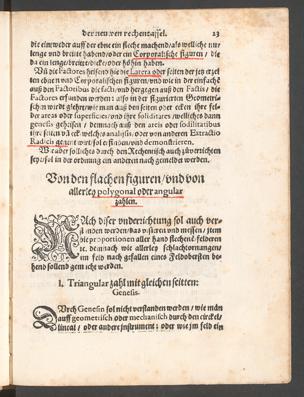 der neuwen rechentaffel. 23
die einweder auff der ebne ein fleche machend/als welliche nur
lenge vnd breite habend/oder ein Corporalische figuren/ die
da ein lenge/breite/dicke/oder höhin haben.
Vñ die Factores heissend hie die Latera oder seiten der jetz erzel
ten ebnen vnd Corporalischen figuren/vnd wie in der einfache
auß den Factoribus die facti/vnd hergegen auß den Factis/ die
Factores erfunden werden: also in der figurierten Geometri-
sch
areas oder superficies/vnd ihre soliditates/
genesis geheissen/ demnach auß den areis oder soliditatibus
ihre seiten welches analysis/ oder von anderen Extractio
Radicis genent wirt/sol erfunden/vnd demonstrieren.
solliches durch den Rechentisch auch
sey/sol in der ordnung ein anderen nach gemeldet werden.
Von den flachen figuren/vnd von
allerley polygonal oder angular
zahlen.
Nach diser vnderrichtung sol auch ver-
standen werden/das visieren vnd messen/ item
die proportionen aller hand flechend felderen
demnach wie allerley schlachtornungen/
im feld nach gefallen eines Feldobersten be-
hend sollend gemacht werden.
I. Triangular zahl mit gleichen seitten:
Genesis.
Durch Genesin sol nicht verstanden werden/ wie man
auff geometrisch oder mechanisch durch den circkel/
lineal/ oder andere instrument: oder wie im feld ein